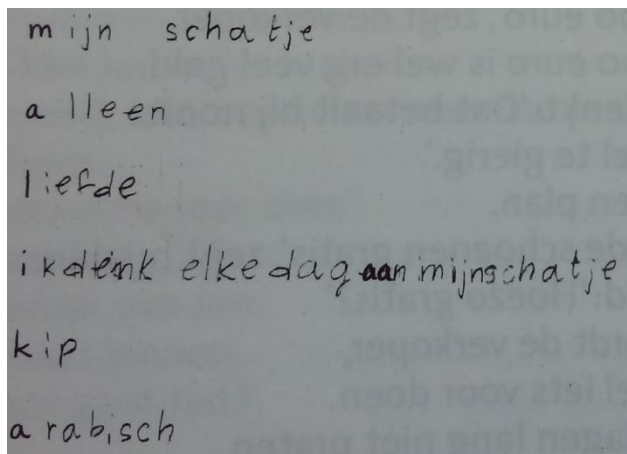 mijn schatje
alleen
liefde
ik denk elke dag aan mijn schatje
kip
arabisch